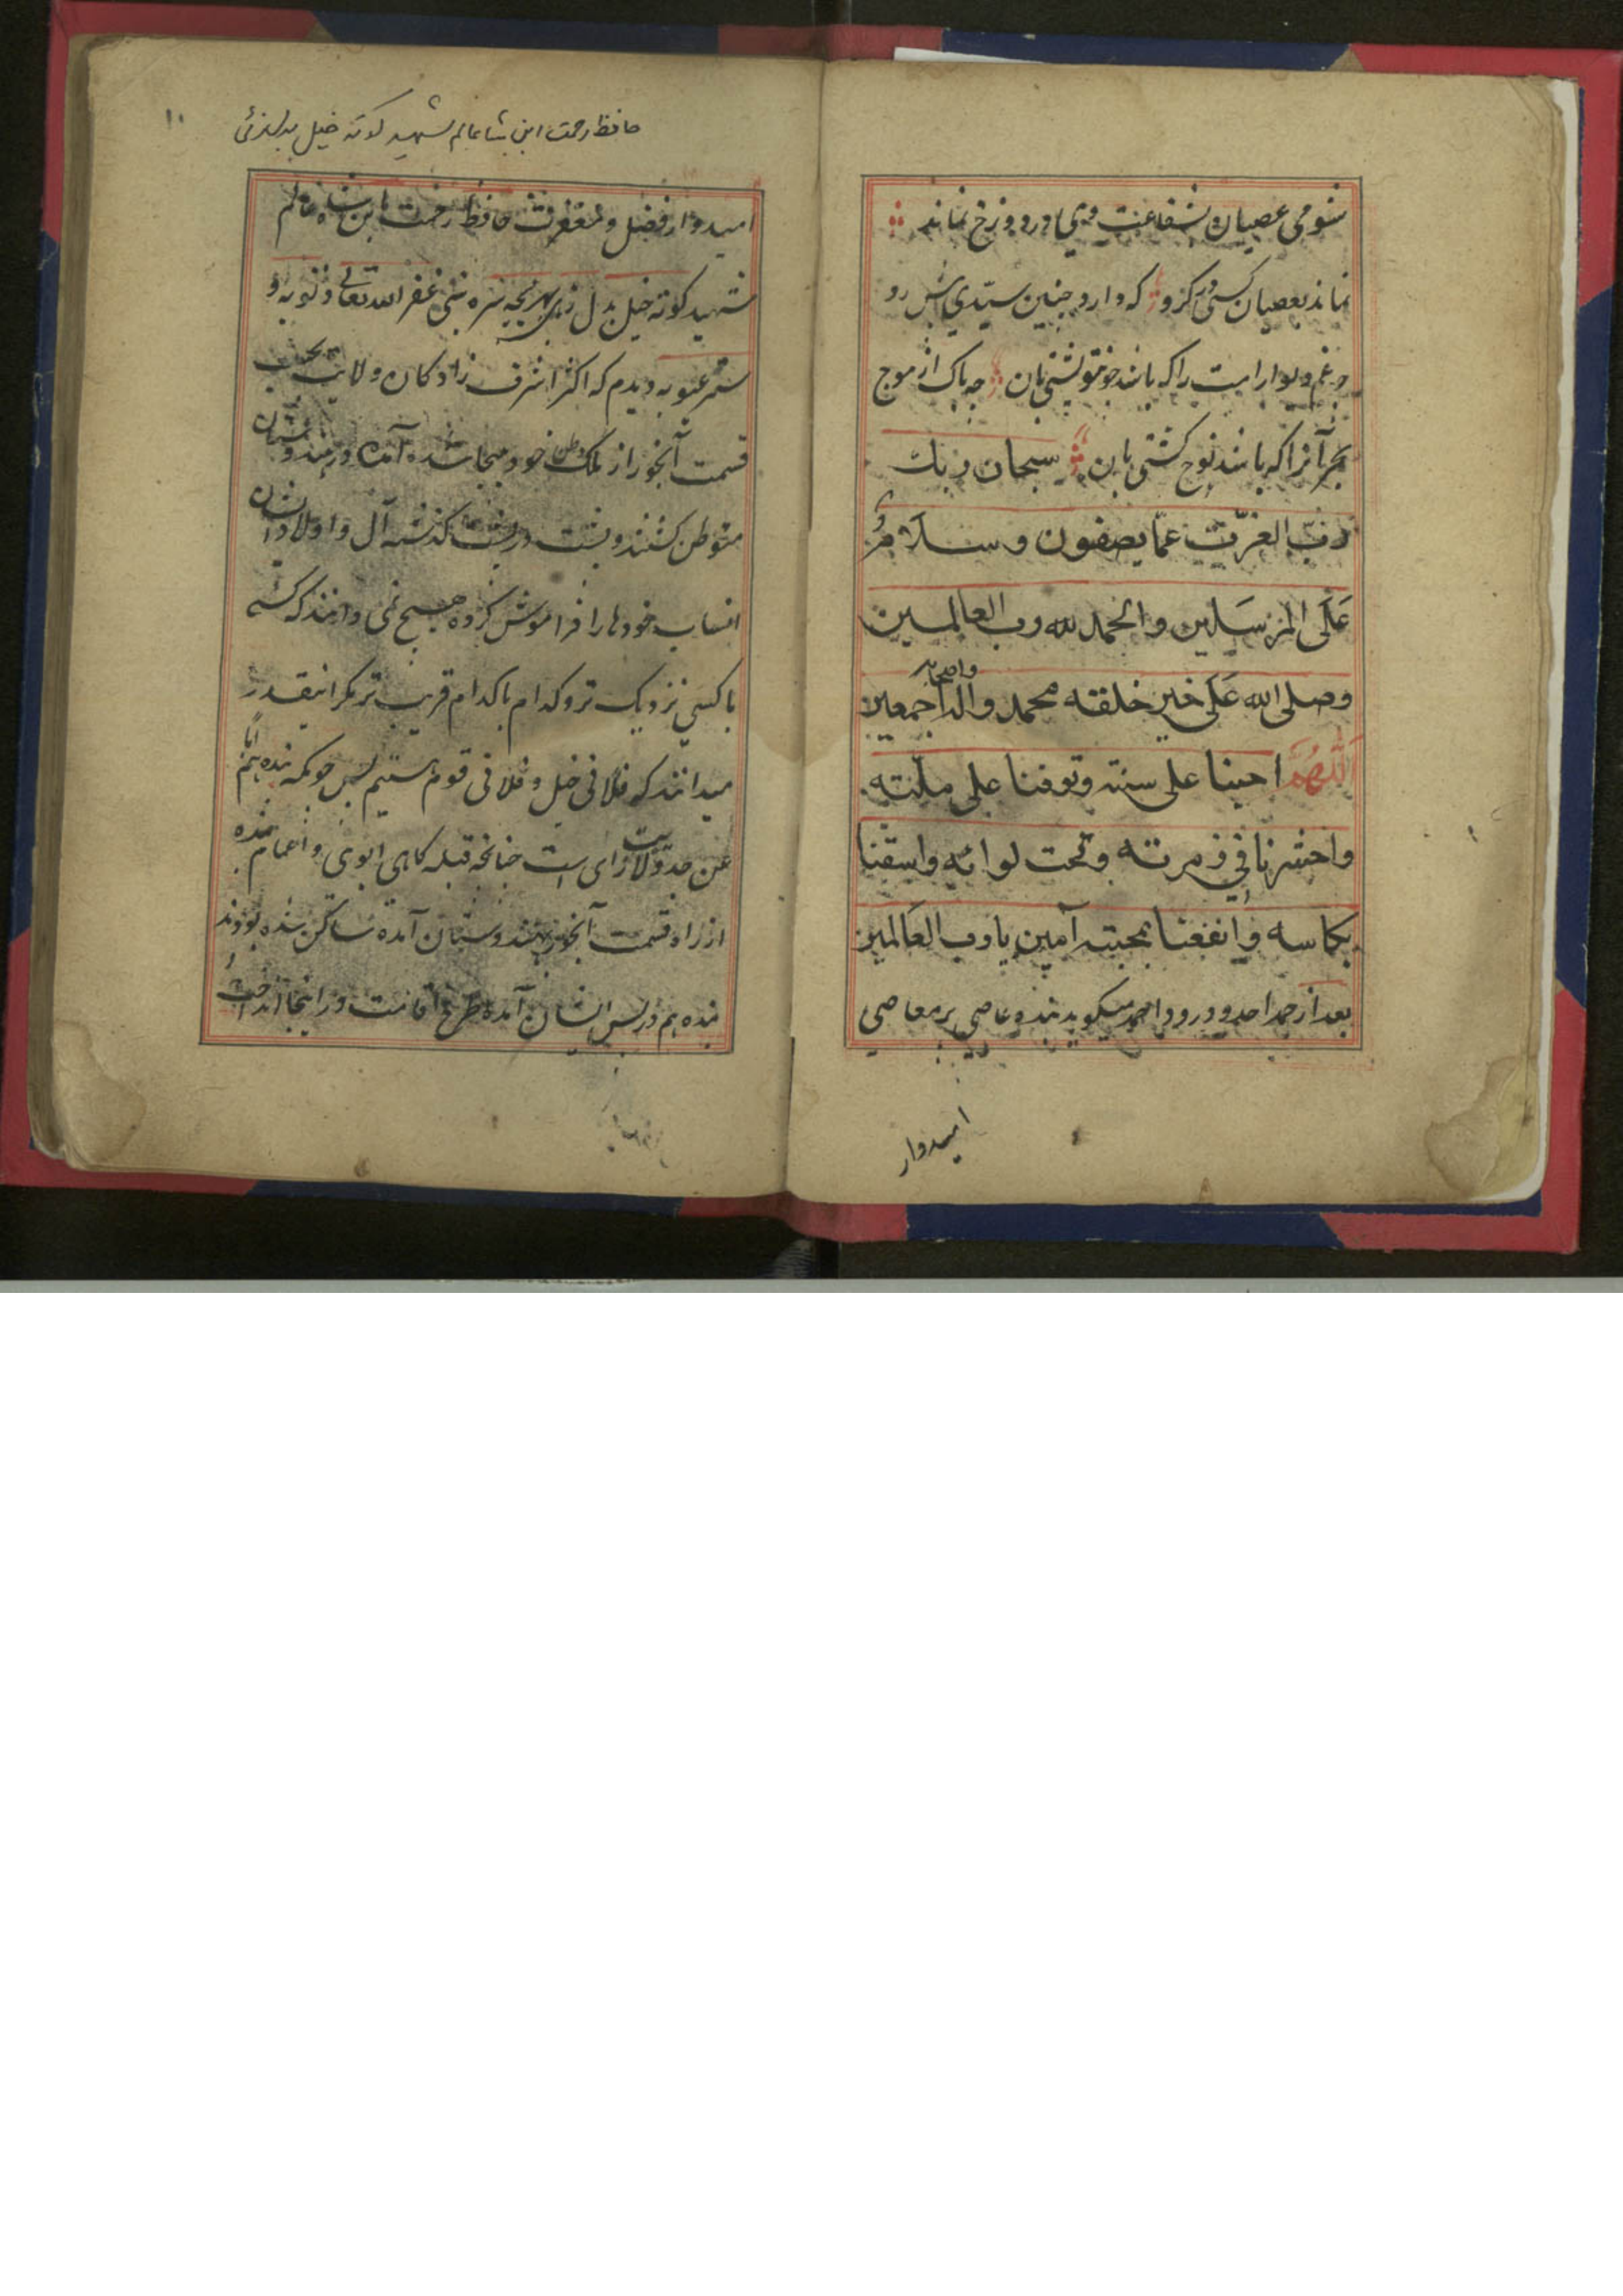 شومی عصیان و شفاعت وی در دوزخ نماند
نماند بعصیان کسی در گرو که دارد چنین سیّدی پیش رو
چه غم دیوار امت را که باشد چون تو پشتی بان چه باک از موج
بحر آنرا که باشد نوح کشتی بان سبحان ربك
رب العزّت عمّا یصفون و سلامُ
عَلَی المرسَلین و الحمد لله رب العالمین
وصلی الله عَلَی خیر خلقه محمد و اله و اصحابه اجمعین
اللّٰهُمَّ احینا علی سنته و توفنا علی ملّته
واحشرنا فی زمرته و تحت لوائه واسقنا
بکاسه و انفعنا بمحبته آمین یا رب العَالمین
بعد از حمد احد و درود احمد میگوید بنده عاصی پر معاصی
امیدوار
۱۰
حافظ رحمت ابن شاه عالم شهید کوته خیل بدلزئی
امیدوار فضل و مغفرت حافظ رحمت ابن شاه عالم
شهید کوته خیل بدل زی سره بنی غفر الله تعالی ذنوبه و
ستر عیوبه دیدم که اکثر اشرف زادگان ولایت بحسب
قسمت آبخور از ملک و وطن خود بیجا شده آمده در هندوستان
متوطن گشتند و پشت در پشت گذشته آل و اولاد ایشان
انساب خودها را فراموش کرده هیچ نمی دانند که کسی
با کسی نزدیک تر و کدام با کدام قریب تر مگر اینقدر
میدانند که فلانی خیل و فلانی قوم هستیم پس چونکه بنده هم
عن جد ولایت زای است چنانچه قبله گاهی ابوی و اعمام بنده
از راه قسمت آبخور بهندوستان آمده ساکن شده بودند
بنده هم در پس ایشان آمده طرح اقامت در اینجا انداخت